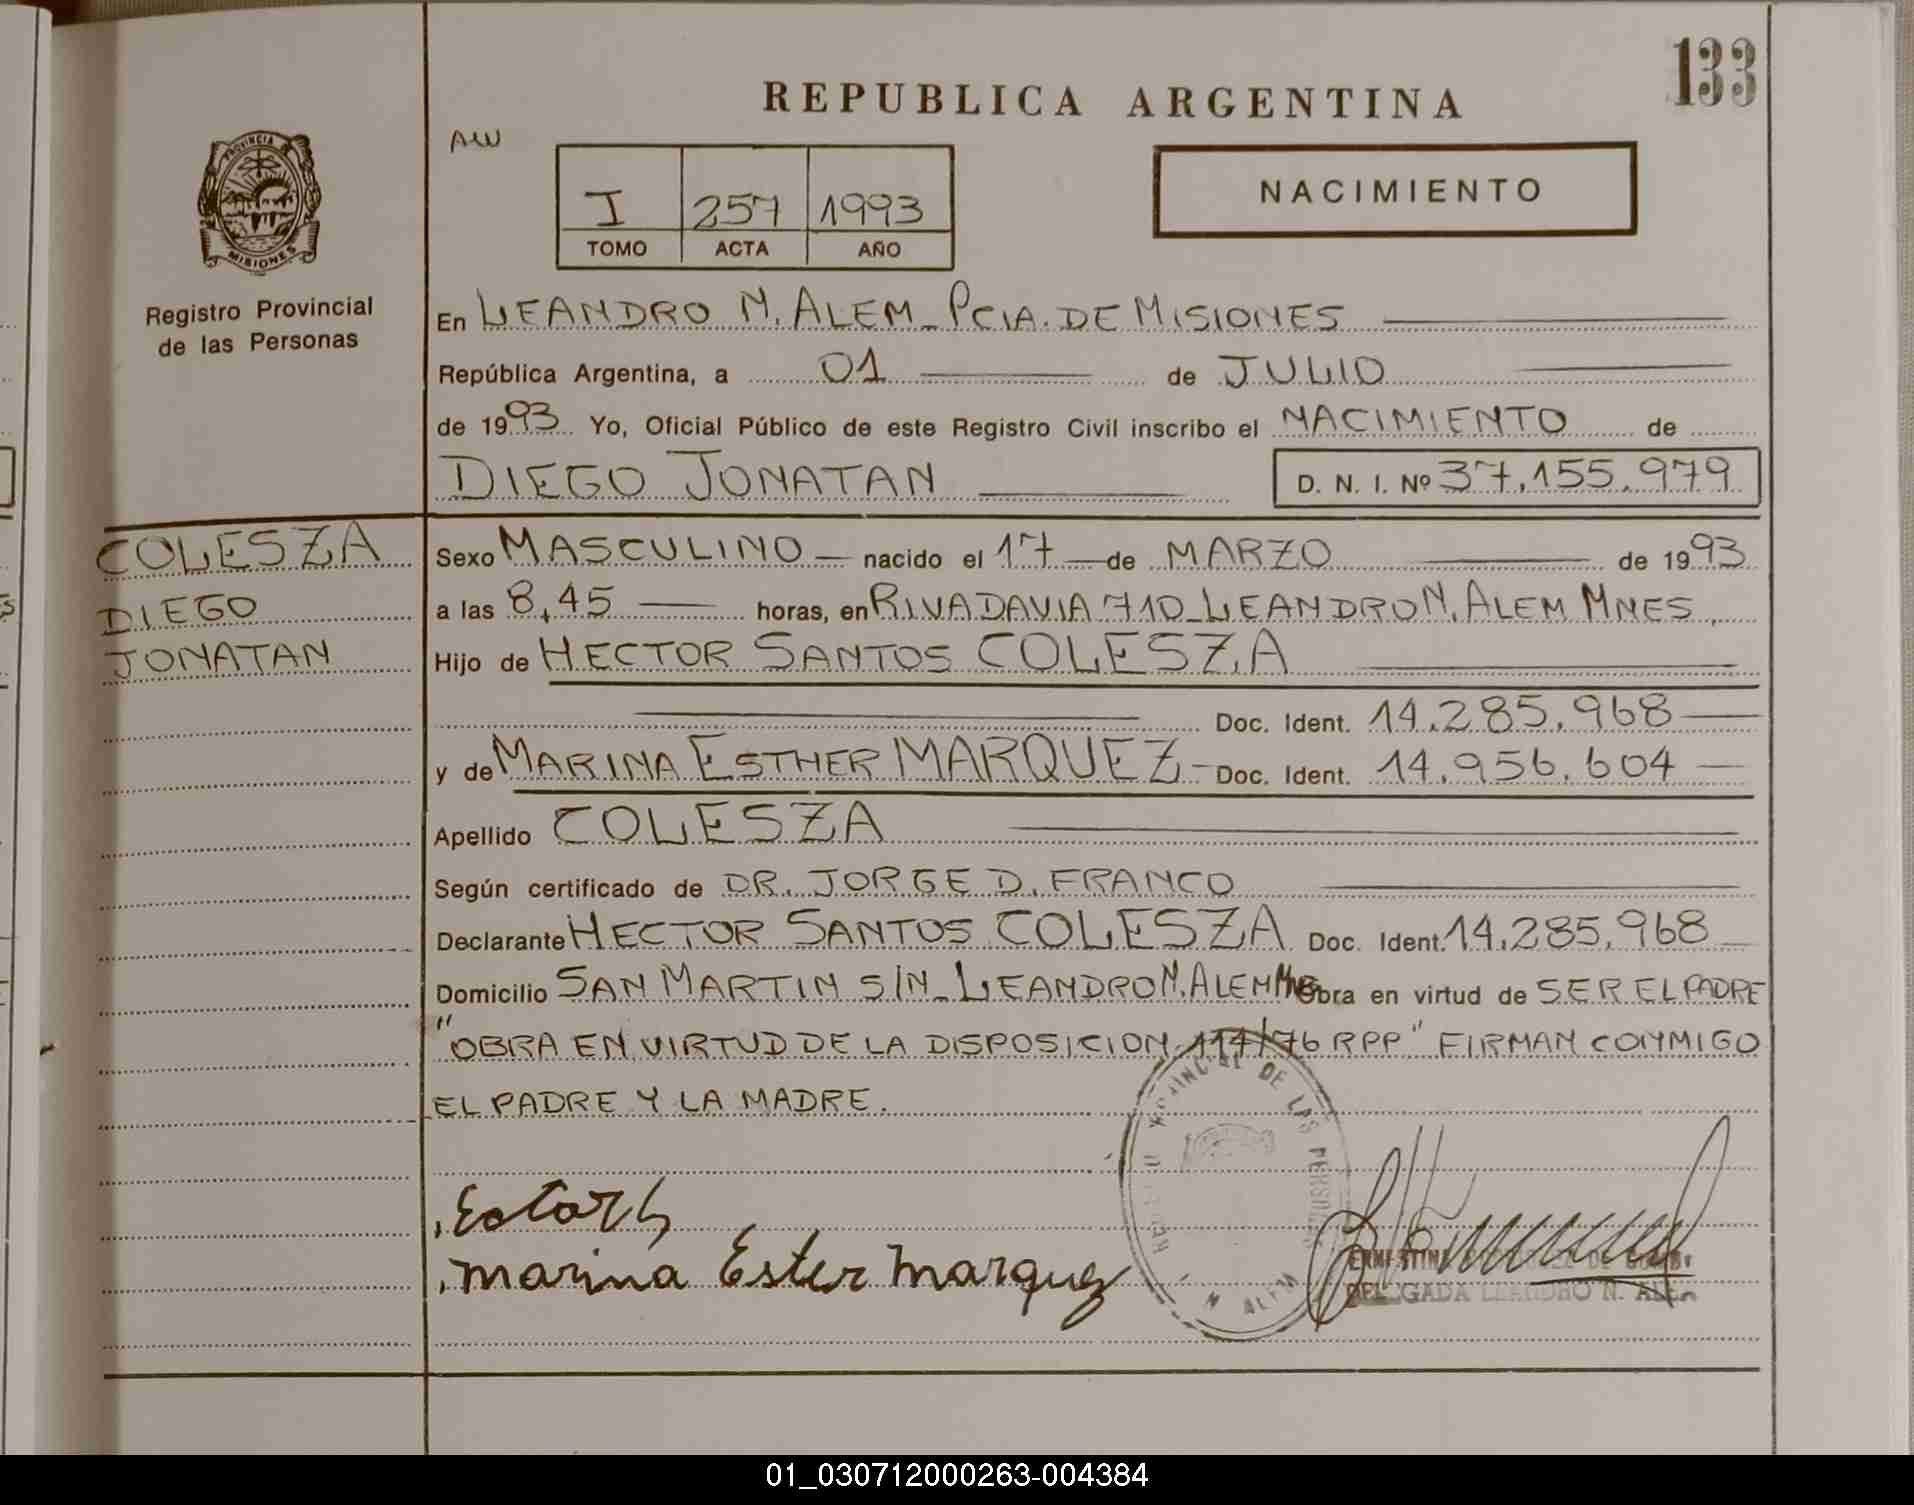 133
REPUBLICA ARGENTINA
AW
PROVINCIA DE
MISIONES
Registro Provincial
de las Personas
I 257 1993
TOMO ACTA AÑO
NACIMIENTO
En LEANDRO N. ALEM - PCIA. DE MISIONES
República Argentina, a 01 de JULIO
de 1993 Yo, Oficial Público de este Registro Civil inscribo el NACIMIENTO de
DIEGO JONATAN D. N. I. Nº 37.155.979
COLESZA
DIEGO
JONATAN
Sexo MASCULINO nacido el 17 de MARZO de 1993
a las 8,45 horas, en RIVADAVIA 710 - LEANDRO N. ALEM MNES
Hijo de HECTOR SANTOS COLESZA
Doc. Ident. 14.285.968
y de MARINA ESTHER MARQUEZ - Doc. Ident. 14.956.604
Apellido COLESZA
Según certificado de DR. JORGE D. FRANCO
Declarante HECTOR SANTOS COLESZA Doc. Ident. 14.285.968
Domicilio SAN MARTIN S/N - LEANDRO N. ALEM Obra en virtud de SER EL PADRE
"OBRA EN VIRTUD DE LA DISPOSICION 114/76 RPP" FIRMAN CONMIGO
EL PADRE Y LA MADRE.
DE LAS PERSONAS
N. ALEM
marina Ester marquez
DELEGADA LEANDRO N. ALEM
01_030712000263-004384